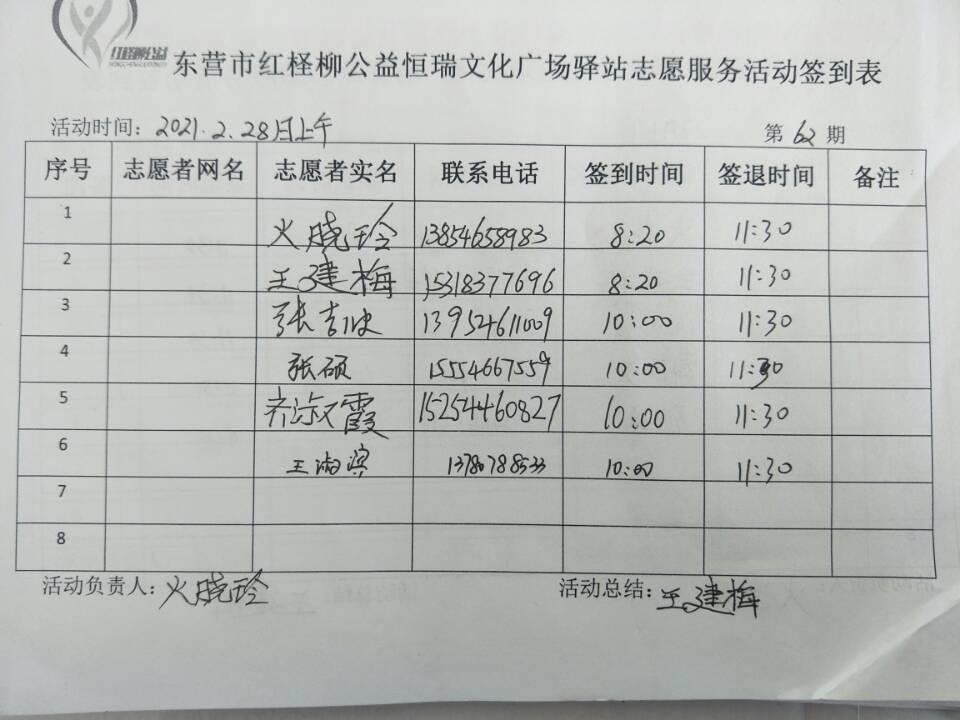 红柽柳公益
东营市红柽柳公益恒瑞文化广场驿站志愿服务活动签到表
活动时间：2021.2.28日上午 第62期
序号 志愿者网名 志愿者实名 联系电话 签到时间 签退时间 备注
1 火晓玲 13854658983 8:20 11:30
2 王建梅 15318377696 8:20 11:30
3 张 13954611009 10:00 11:30
4 张硕 15554667559 10:00 11:30
5 齐 霞 15254460827 10:00 11:30
6 王海滨 13780788533 10:00 11:30
7
8
活动负责人：火晓玲 活动总结：王建梅